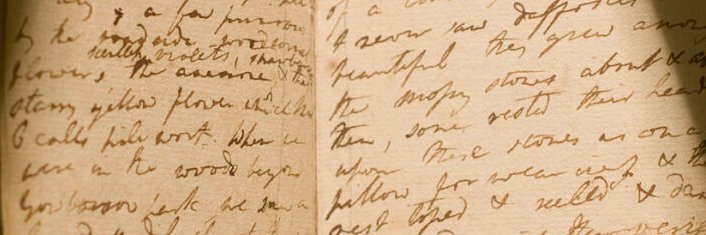 & a few primrose
by the roadside woodsorrel
scentless violets, strawberries
flower, the anemone, & that
starry yellow flower which Mrs
C calls pile wort. When we
were in the woods beyond
Gowbarrow park we saw a
of a
I never saw daffodils so
beautiful they grew among
the mossy stones about &
them, some rested their heads
upon these stones as on a
pillow for weariness & the
rest tossed & reeled & dan